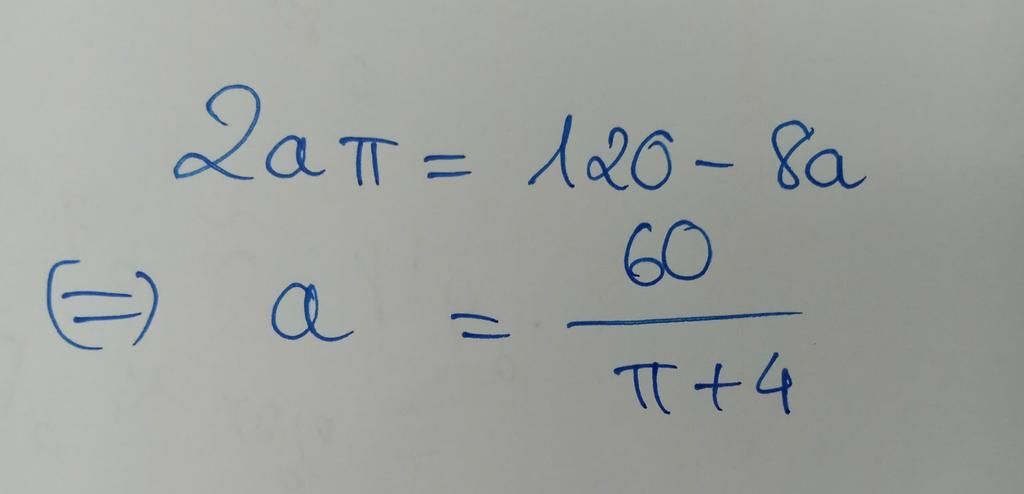 2aπ = 120 - 8a
(=) a = 60/(π+4)